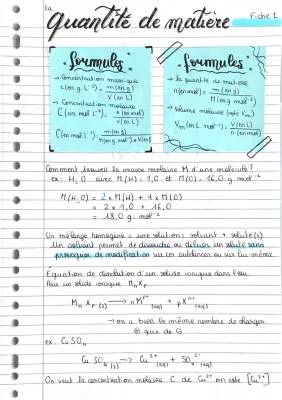 La
quantité de matière
Fiche 1
formules
→ Concentration massique
c (en g.L⁻¹) = m (en g) / V (en L)
→ Concentration molaire
C (en mol.L⁻¹) = n (en mol) / V (en L)
C (en mol.L⁻¹) = m (en g) / M (en g.mol⁻¹) × V (en L)
formules
→ la quantité de matière
n (en mol) = m (en g) / M (en g.mol⁻¹)
→ Volume molaire (noté Vm)
Vm (en L.mol⁻¹) = V (en L) / n (en mol)
Comment trouver la masse molaire M d'une molécule ?
ex : H₂O avec M(H) = 1,0 et M(O) = 16,0 g.mol⁻¹
M(H₂O) = 2 x M(H) + 1 x M(O)
= 2 x 1,0 + 16,0
= 18,0 g.mol⁻¹
Un mélange homogène = une solution : solvant + soluté(s)
Un solvant permet de dissoudre ou diluer un soluté sans
provoquer de modification sur ces substances ou sur lui-même
Équation de dissolution d'un solide ionique dans l'eau
Pour un solide ionique MnXp
MnXp (s) → n M^p+ (aq) + p X^n- (aq)
→ on a bien le même nombre de charges
⊕ que de ⊖
ex : CuSO₄
CuSO₄ (s) → Cu²⁺ (aq) + SO₄²⁻ (aq)
On veut la concentration molaire C de Cu²⁺ on note [Cu²⁺]